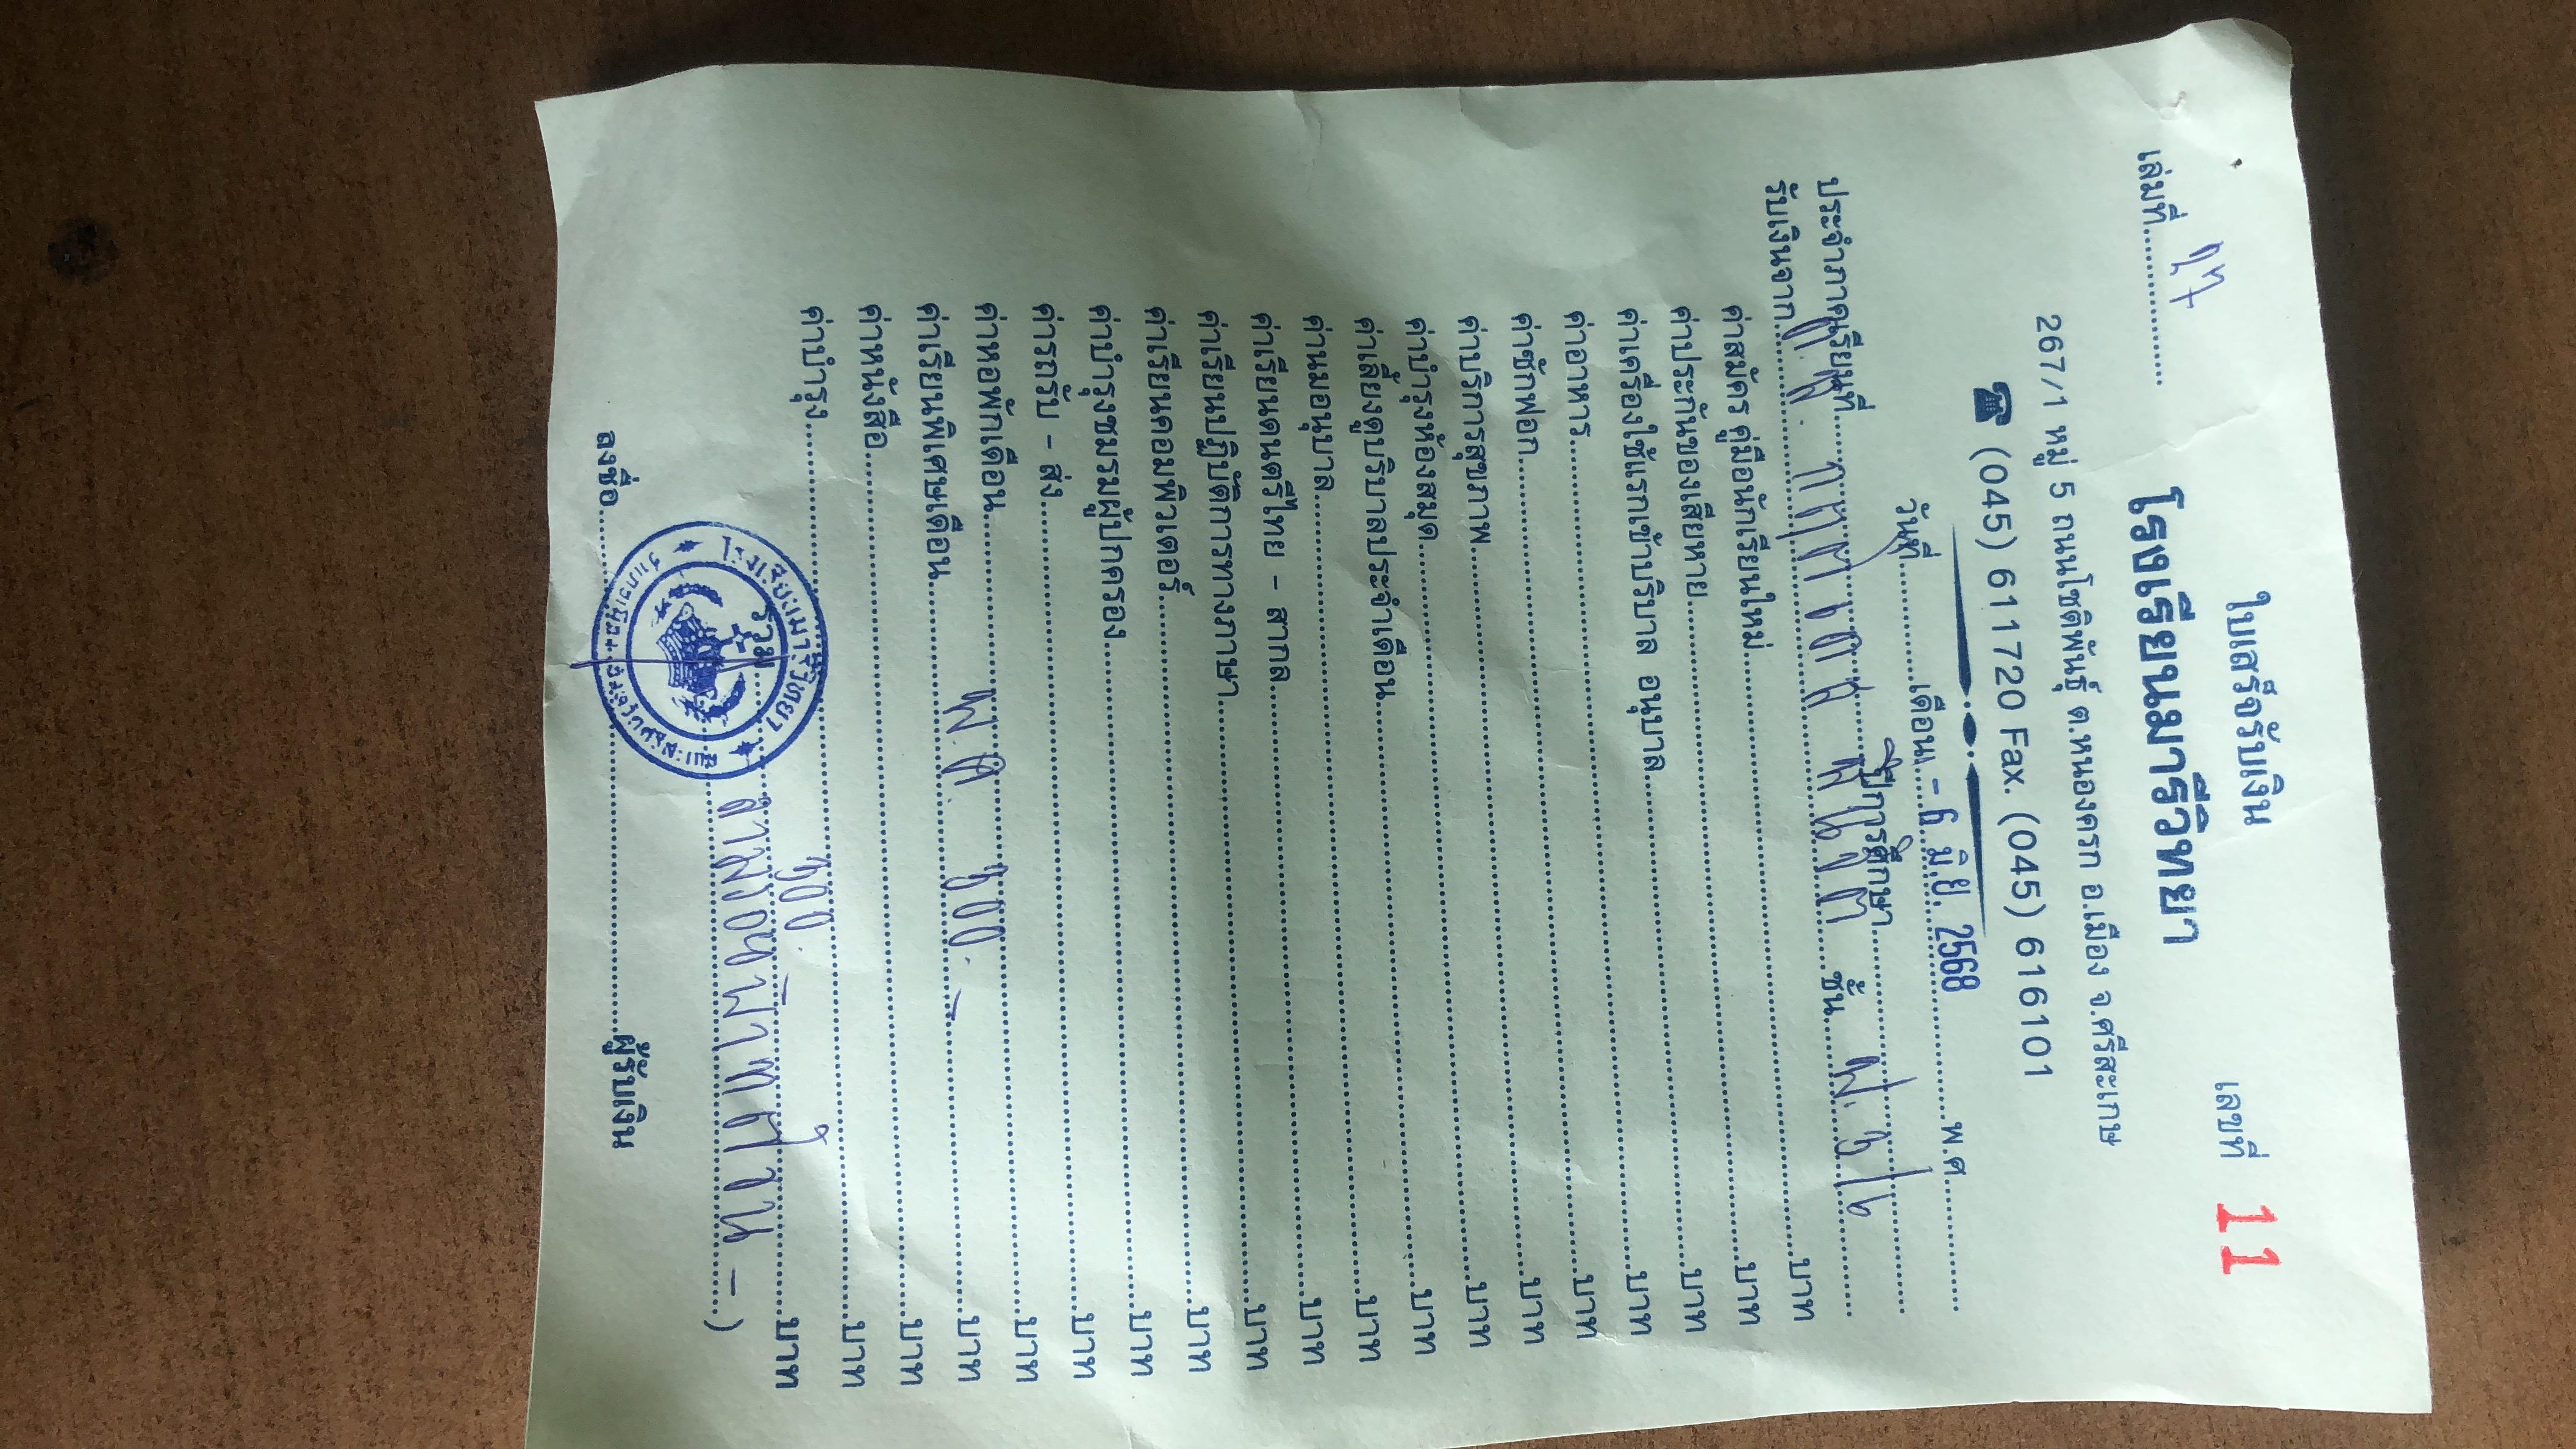 ใบเสร็จรับเงิน
เล่มที่ เลขที่ 11
โรงเรียนมารีวิทยา
267/1 หมู่ 5 ถนนโชติพันธุ์ ต.หนองครก อ.เมือง จ.ศรีสะเกษ
☎ (045) 611720 Fax. (045) 616101
วันที่ เดือน - 6 มิ.ย. 2568 พ.ศ.
ประจำภาคเรียนที่ ปีการศึกษา
รับเงินจาก ด.ญ. ชั้น
ค่าสมัคร คู่มือนักเรียนใหม่ บาท
ค่าประกันของเสียหาย บาท
ค่าเครื่องใช้แรกเข้าบริบาล อนุบาล บาท
ค่าอาหาร บาท
ค่าซักฟอก บาท
ค่าบริการสุขภาพ บาท
ค่าบำรุงห้องสมุด บาท
ค่าเลี้ยงดูบริบาลประจำเดือน บาท
ค่านมอนุบาล บาท
ค่าเรียนดนตรีไทย - สากล บาท
ค่าเรียนปฏิบัติการทางภาษา บาท
ค่าเรียนคอมพิวเตอร์ บาท
ค่าบำรุงชมรมผู้ปกครอง บาท
ค่ารถรับ - ส่ง บาท
ค่าหอพักเดือน บาท
ค่าเรียนพิเศษเดือน พ.ค. 300.- บาท
ค่าหนังสือ บาท
ค่าบำรุง บาท
รวม 300 บาท
สามร้อยบาทถ้วน -)
ลงชื่อ ผู้รับเงิน
โรงเรียนมารีวิทยา
อำเภอเมือง จังหวัดศรีสะเกษ